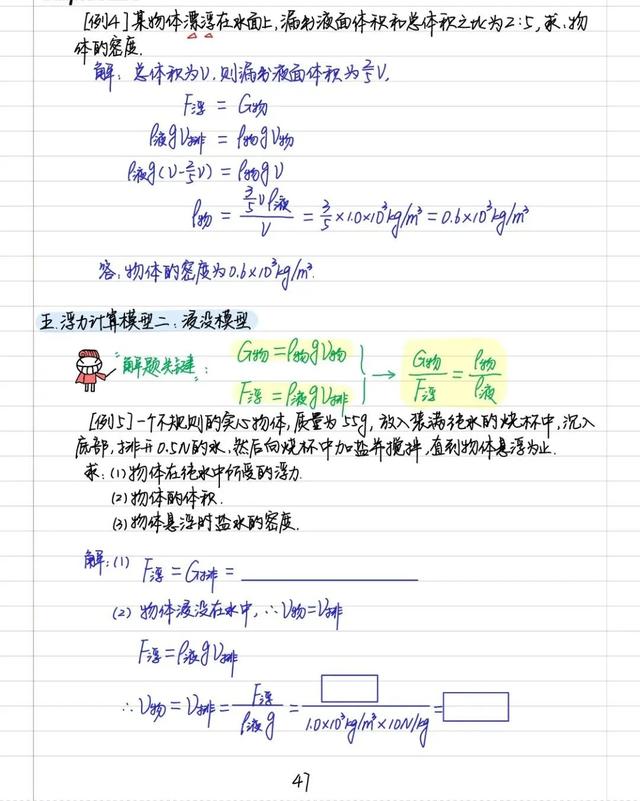 [例4]某物体漂浮在水面上,漏出液面体积和总体积之比为2:5,求:物
体的密度.
解:总体积为V,则漏出液面体积为2/5V.
F浮 = G物
ρ液gV排 = ρ物gV物
ρ液g(V-2/5V) = ρ物gV
ρ物 = 3/5Vρ液/V = 3/5×1.0×10³kg/m³ = 0.6×10³kg/m³
答:物体的密度为0.6×10³kg/m³.
五.浮力计算模型二:浸没模型
"解题关键":
G物=ρ物gV物
F浮=ρ液gV排
→ G物/F浮 = ρ物/ρ液
[例5]一个不规则的实心物体,质量为55g,放入装满纯水的烧杯中,沉入
底部,排开0.5N的水.然后向烧杯中加盐并搅拌,直到物体悬浮为止.
求:(1)物体在纯水中所受的浮力.
(2)物体的体积.
(3)物体悬浮时盐水的密度.
解:(1) F浮=G排=
(2) 物体浸没在水中,∴V物=V排
F浮=ρ液gV排
∴V物=V排=F浮/ρ液g= /1.0×10³kg/m³×10N/kg=
47